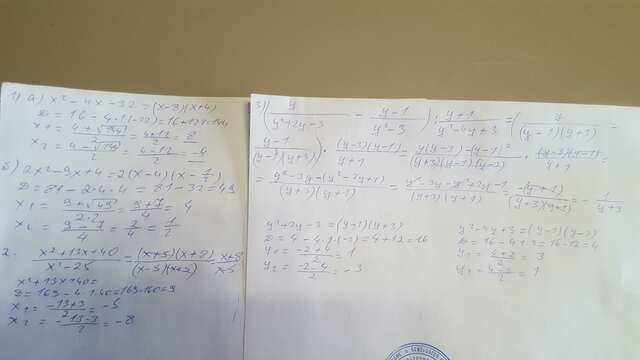 1) а) x² - 4x - 32 = (x-8)(x+4)
D = 16 - 4·1·(-32) = 16+128=144
x₁ = (4+√144)/2 = (4+12)/2 = 8
x₂ = (4-√144)/2 = (4-12)/2 = -4
б) 2x² - 9x + 4 = 2(x-4)(x-1/2)
D = 81 - 2·4·4 = 81 - 32 = 49
x₁ = (9+√49)/(2·2) = (9+7)/4 = 4
x₂ = (9-7)/4 = 2/4 = 1/2
2. (x²+13x+40)/(x²-25) = (x+5)(x+8)/(x-5)(x+5) = (x+8)/(x-5)
x²+13x+40=
D = 169 - 4·1·40=169-160=9
x₁ = (-13+3)/2 = -5
x₂ = (-13-3)/2 = -8
3) (y/(y²+2y-3) - (y-1)/(y²-3)) : (y+1)/(y²-4y+3) = (y/(y-1)(y+3) -
(y-1)/(y-3)(y+3)) · (y-3)(y-1)/(y+1) = (y(y-3)-(y-1)²)/(y+3)(y-1)(y-3) · (y-3)(y-1)/(y+1) =
= (y²-3y-(y²-2y+1))/(y+3)(y+1) = (y²-3y-y²+2y-1)/(y+3)(y+1) = -(y+1)/(y+3)(y+1) = -1/(y+3)
y²+2y-3 = (y-1)(y+3)
D = 4 - 4·1·(-3) = 4+12=16
y₁ = (-2+4)/2 = 1
y₂ = (-2-4)/2 = -3
y²-4y+3 = (y-1)(y-3)
D = 16 - 4·1·3 = 16-12=4
y₁ = (4+2)/2 = 3
y₂ = (4-2)/2 = 1